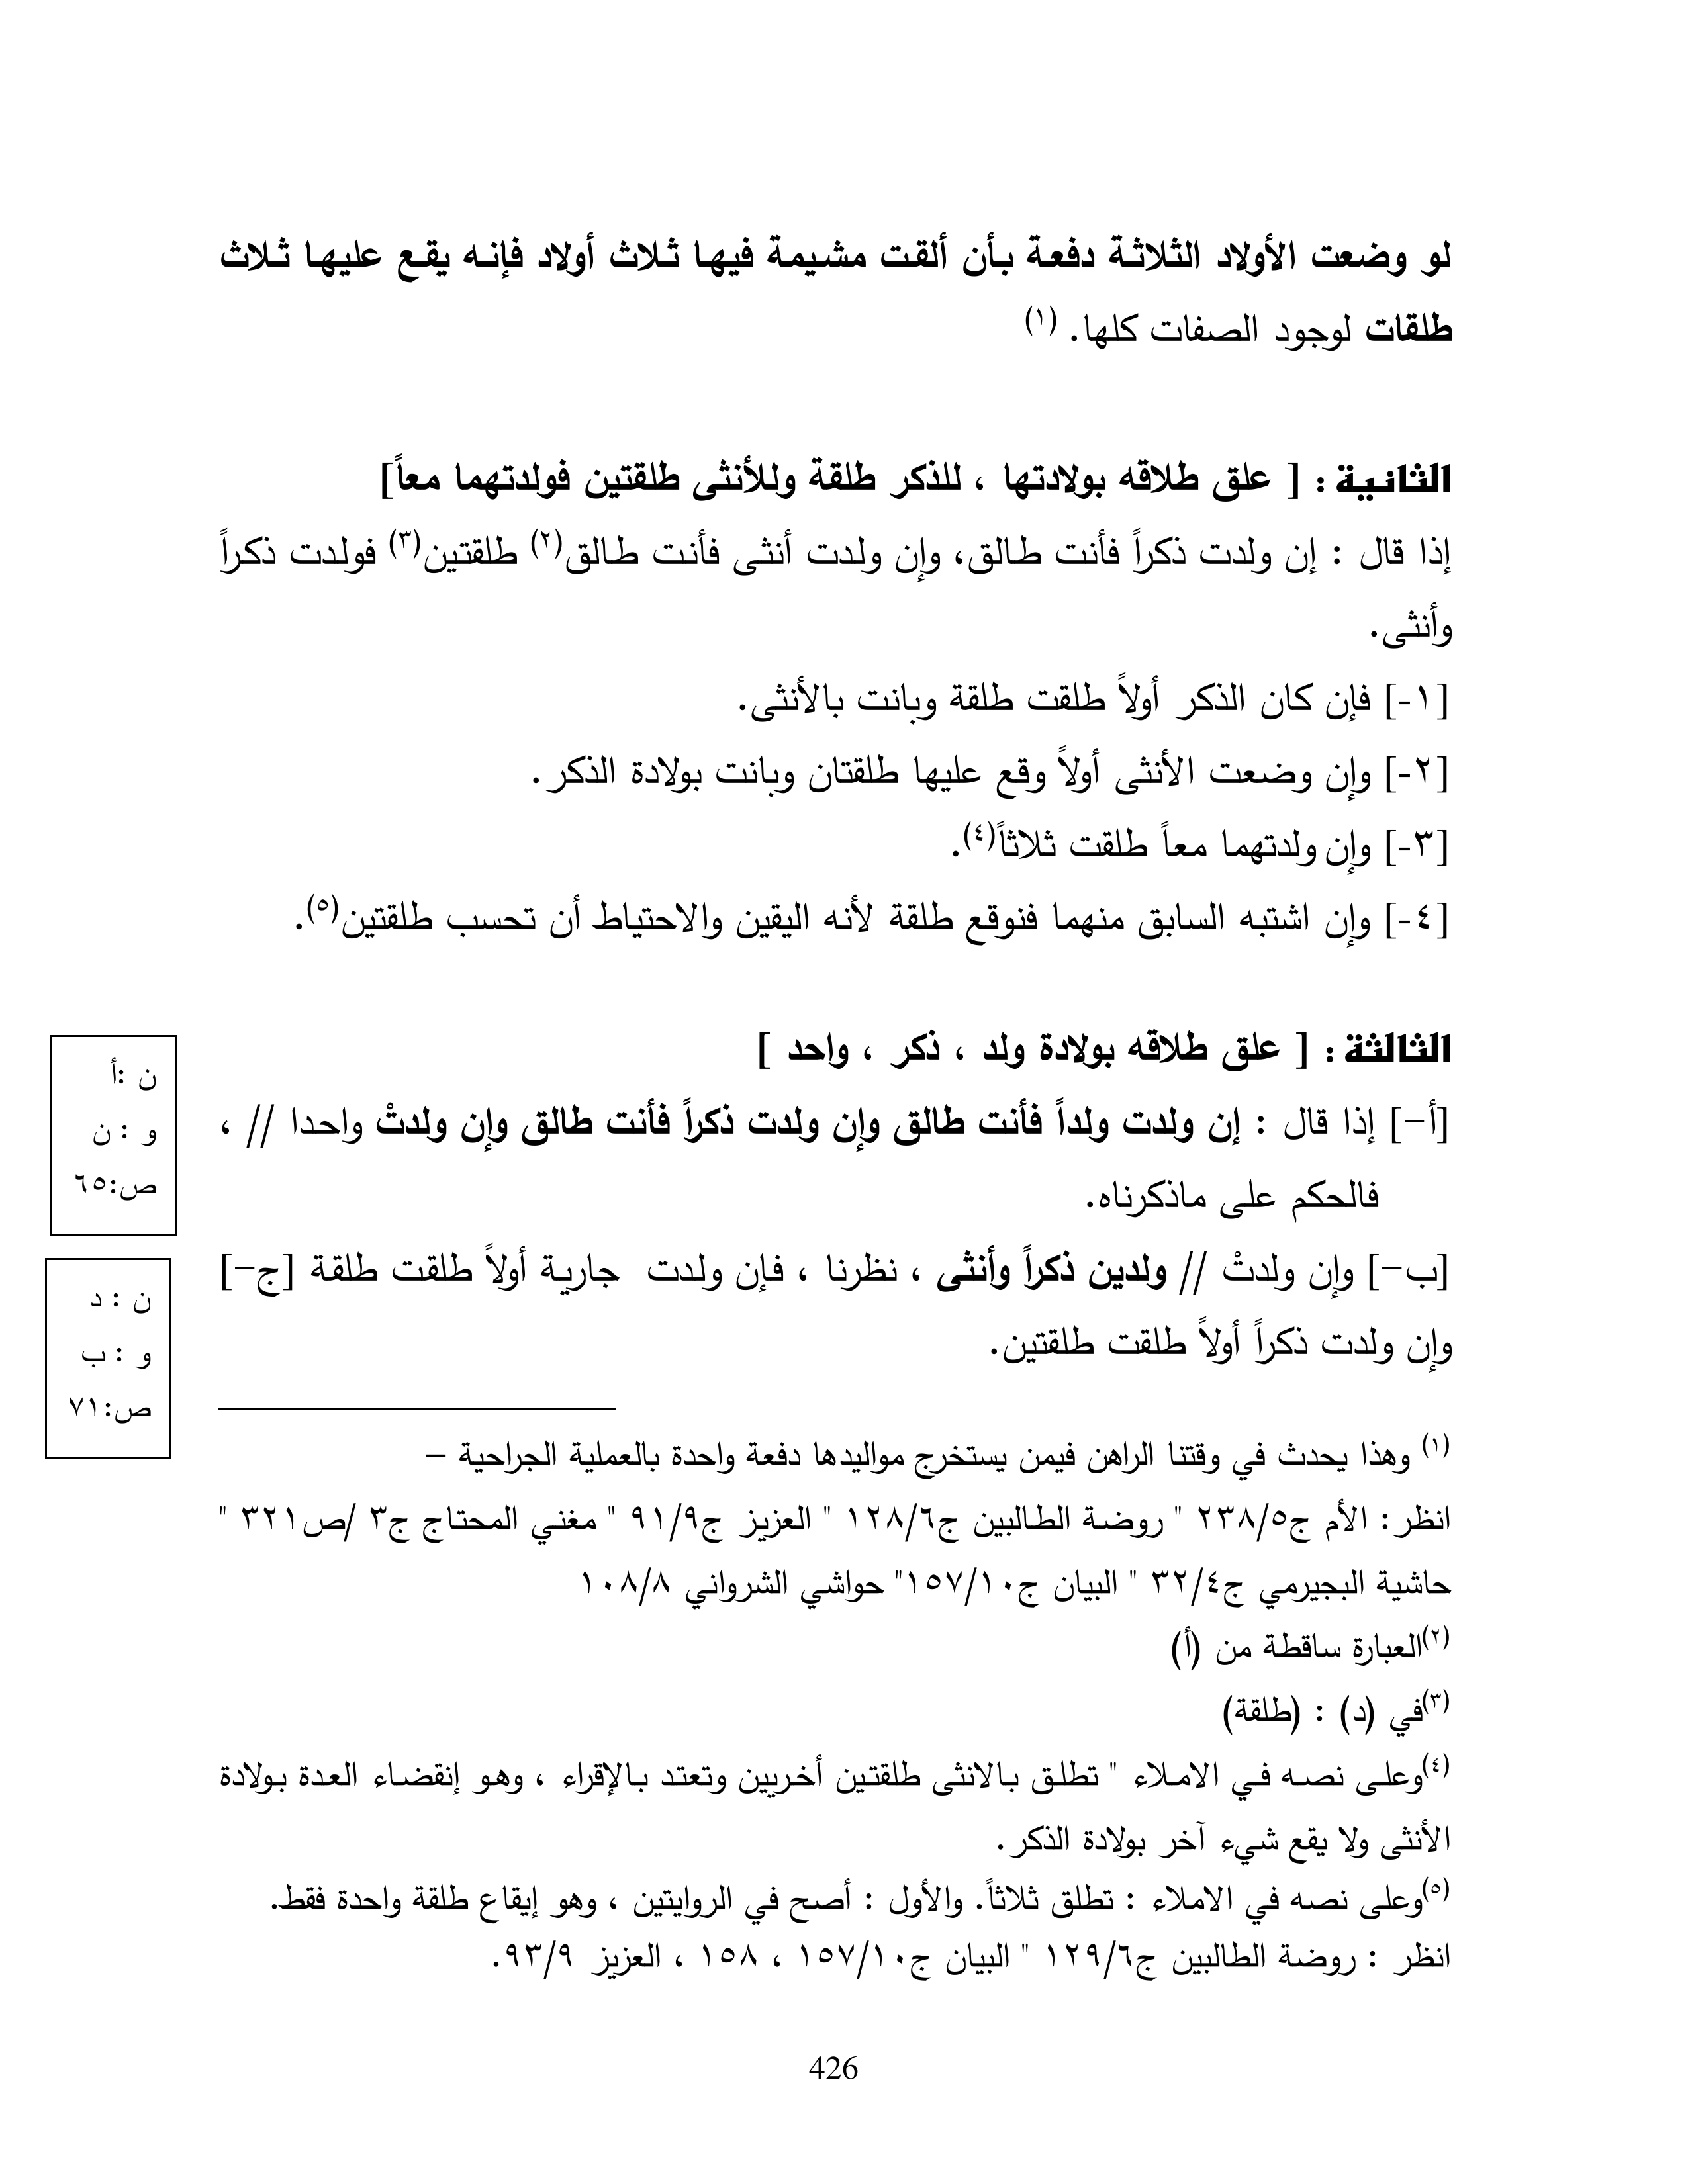 لو وضعت الأولاد الثلاثة دفعة بأن ألقت مشيمة فيها ثلاث أولاد فإنه يقع عليها ثلاث
طلقات لوجود الصفات كلها. (١)
الثانية : [ علق طلاقه بولادتها ، للذكر طلقة وللأنثى طلقتين فولدتهما معاً]
إذا قال : إن ولدت ذكراً فأنت طالق، وإن ولدت أنثى فأنت طالق(٢) طلقتين(٣) فولدت ذكراً
وأنثى.
[١-] فإن كان الذكر أولاً طلقت طلقة وبانت بالأنثى.
[٢-] وإن وضعت الأنثى أولاً وقع عليها طلقتان وبانت بولادة الذكر.
[٣-] وإن ولدتهما معاً طلقت ثلاثاً(٤).
[٤-] وإن اشتبه السابق منهما فنوقع طلقة لأنه اليقين والاحتياط أن تحسب طلقتين(٥).
الثالثة : [ علق طلاقه بولادة ولد ، ذكر ، واحد ]
[أ–] إذا قال : إن ولدت ولداً فأنت طالق وإن ولدت ذكراً فأنت طالق وإن ولدتْ واحدا // ،
فالحكم على ماذكرناه.
[ب–] وإن ولدتْ // ولدين ذكراً وأنثى ، نظرنا ، فإن ولدت جارية أولاً طلقت طلقة [ج–]
وإن ولدت ذكراً أولاً طلقت طلقتين.
ن :أ
و : ن
ص:٦٥
ن : د
و : ب
ص:٧١
(١) وهذا يحدث في وقتنا الراهن فيمن يستخرج مواليدها دفعة واحدة بالعملية الجراحية –
انظر: الأم ج٢٣٨/٥ " روضة الطالبين ج١٢٨/٦ " العزيز ج٩١/٩ " مغني المحتاج ج٣ /ص٣٢١ "
حاشية البجيرمي ج٣٢/٤ " البيان ج١٥٧/١٠" حواشي الشرواني ١٠٨/٨
(٢)العبارة ساقطة من (أ)
(٣)في (د) : (طلقة)
(٤)وعلى نصه في الاملاء " تطلق بالانثى طلقتين أخريين وتعتد بالإقراء ، وهو إنقضاء العدة بولادة
الأنثى ولا يقع شيء آخر بولادة الذكر.
(٥)وعلى نصه في الاملاء : تطلق ثلاثاً. والأول : أصح في الروايتين ، وهو إيقاع طلقة واحدة فقط.
انظر : روضة الطالبين ج١٢٩/٦ " البيان ج١٥٧/١٠ ، ١٥٨ ، العزيز ٩٣/٩.
426